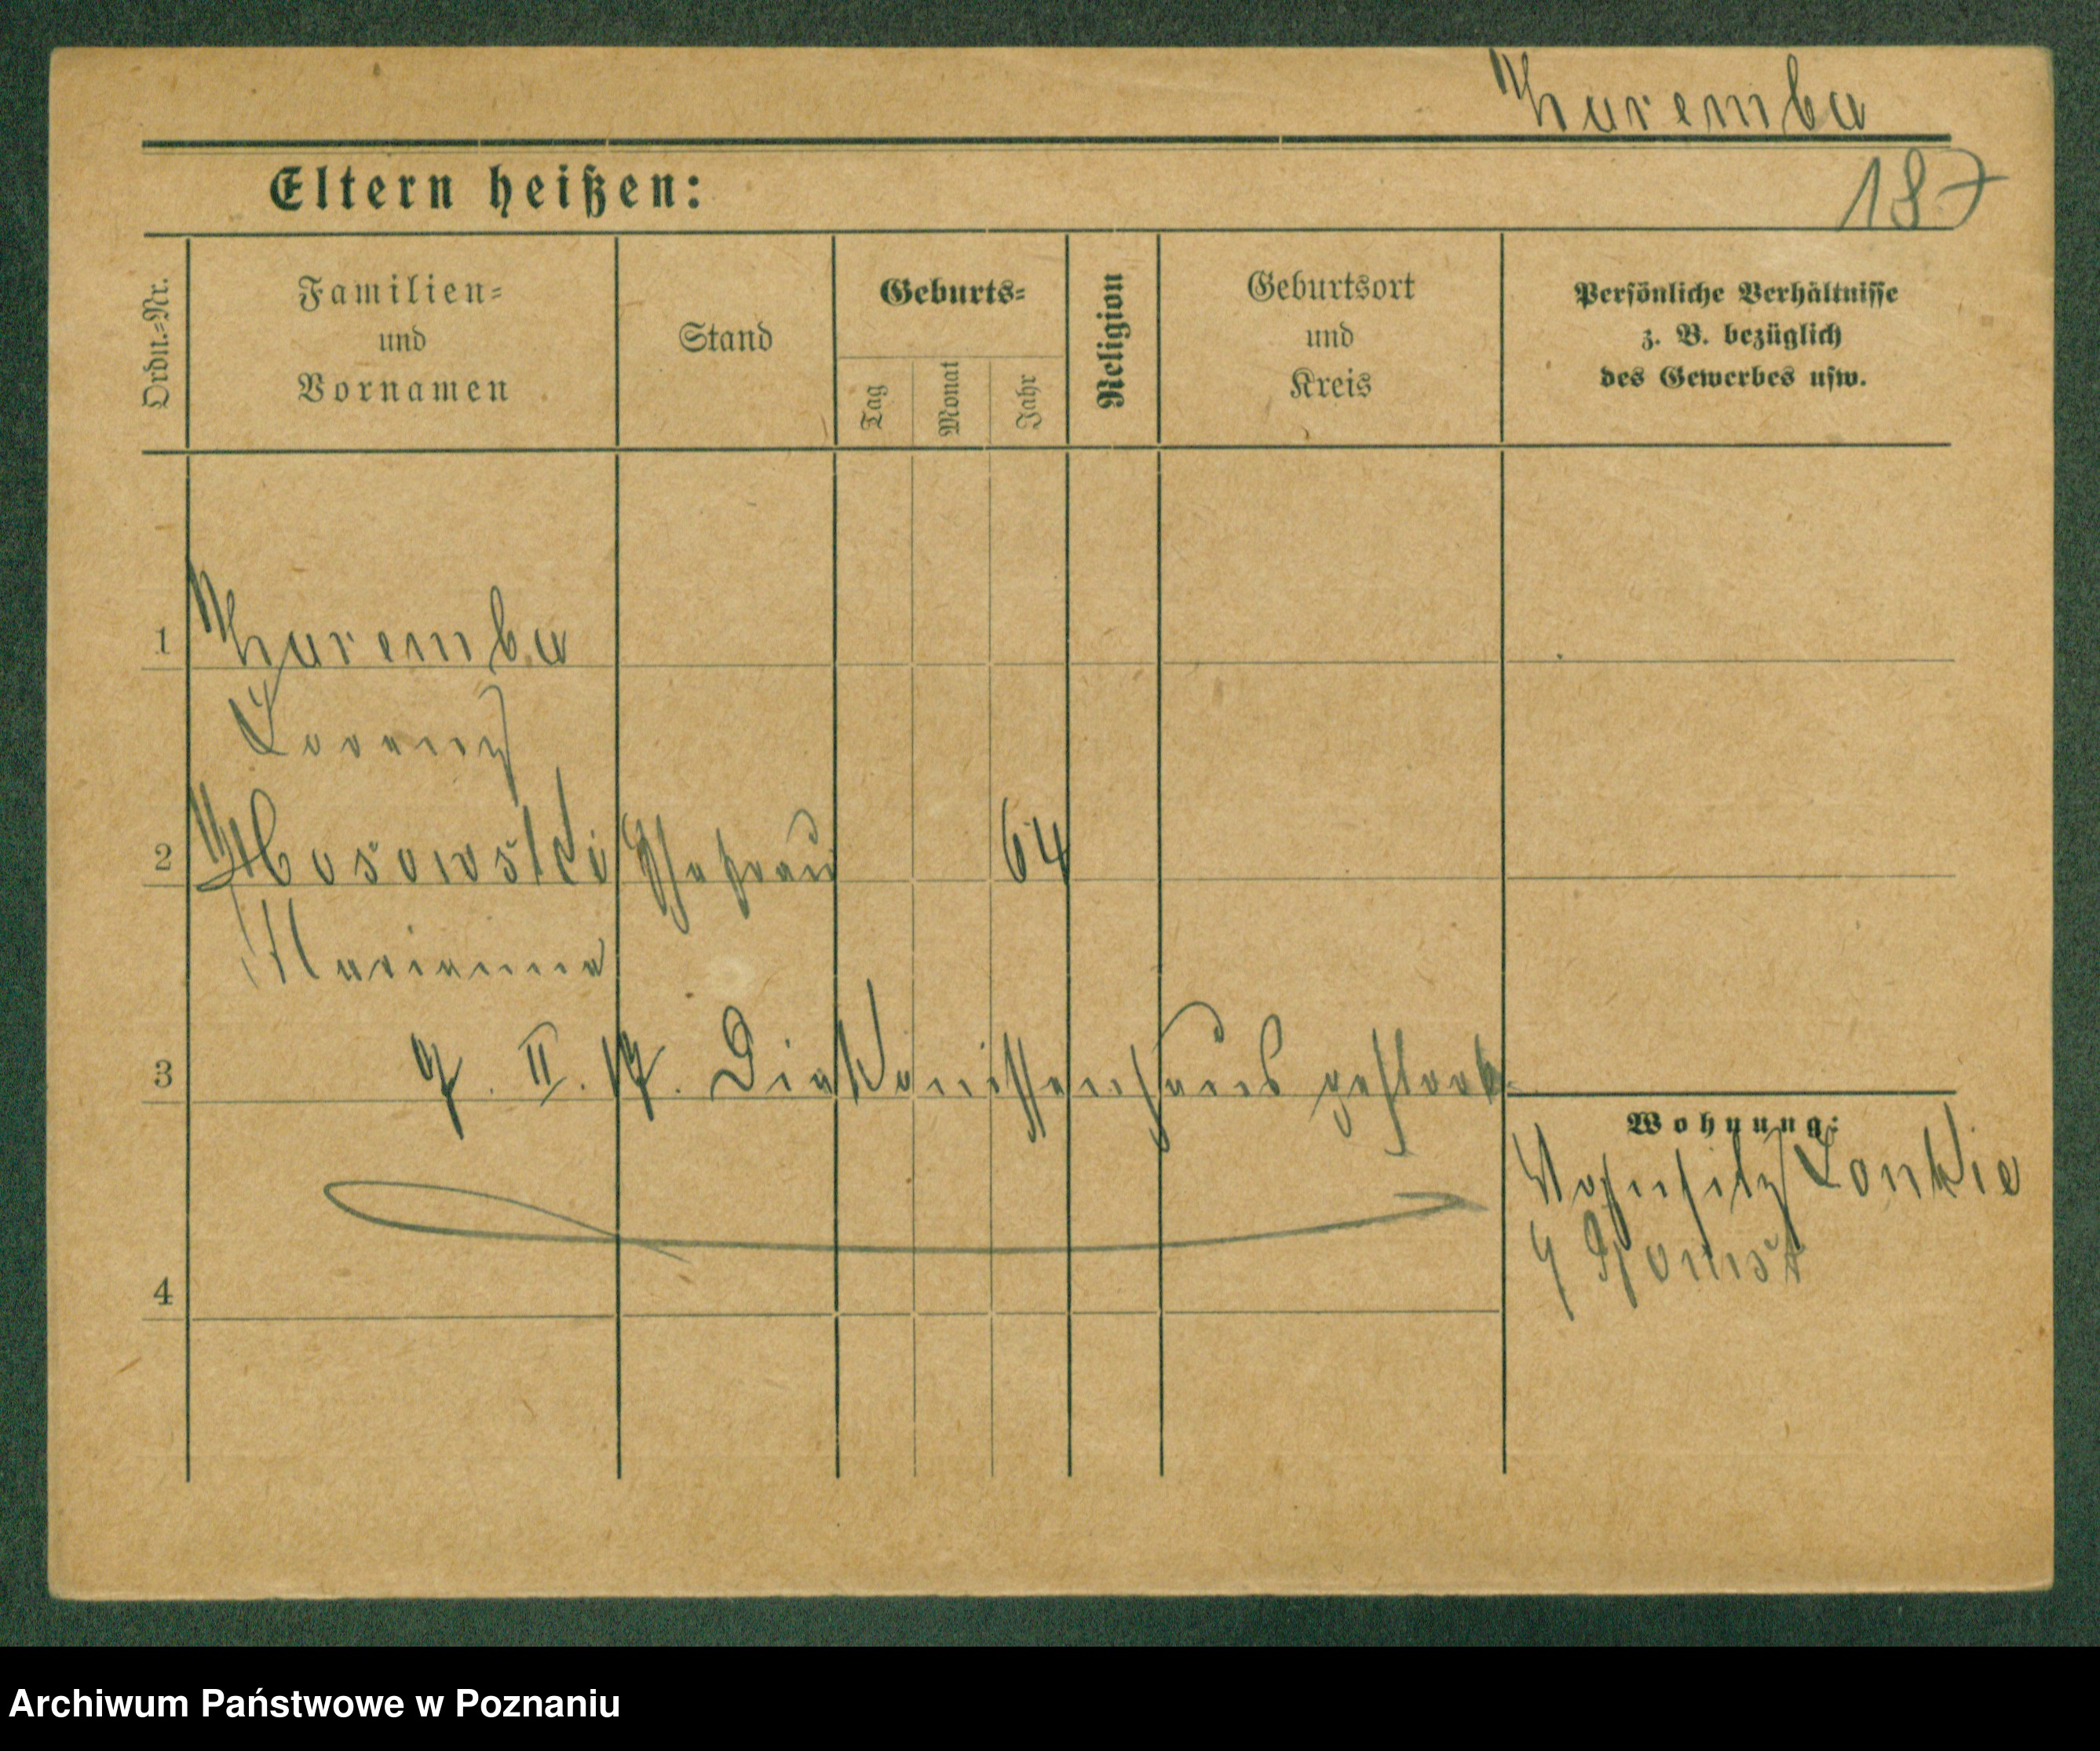 Zaremba
187
Eltern heißen:
Ordn.-Nr.
Familien-
und
Vornamen
Stand
Geburts-
Tag
Monat
Jahr
Religion
Geburtsort
und
Kreis
Persönliche Verhältnisse
z. B. bezüglich
des Gewerbes usw.
1
Zaremba
Lorenz
2
Ehefrau
64
Marianne
3
II. 17. Diakonissenhaus gestorb.
Wohnung:
Wohnsitz Lonkie
Bomst
4
Archiwum Państwowe w Poznaniu